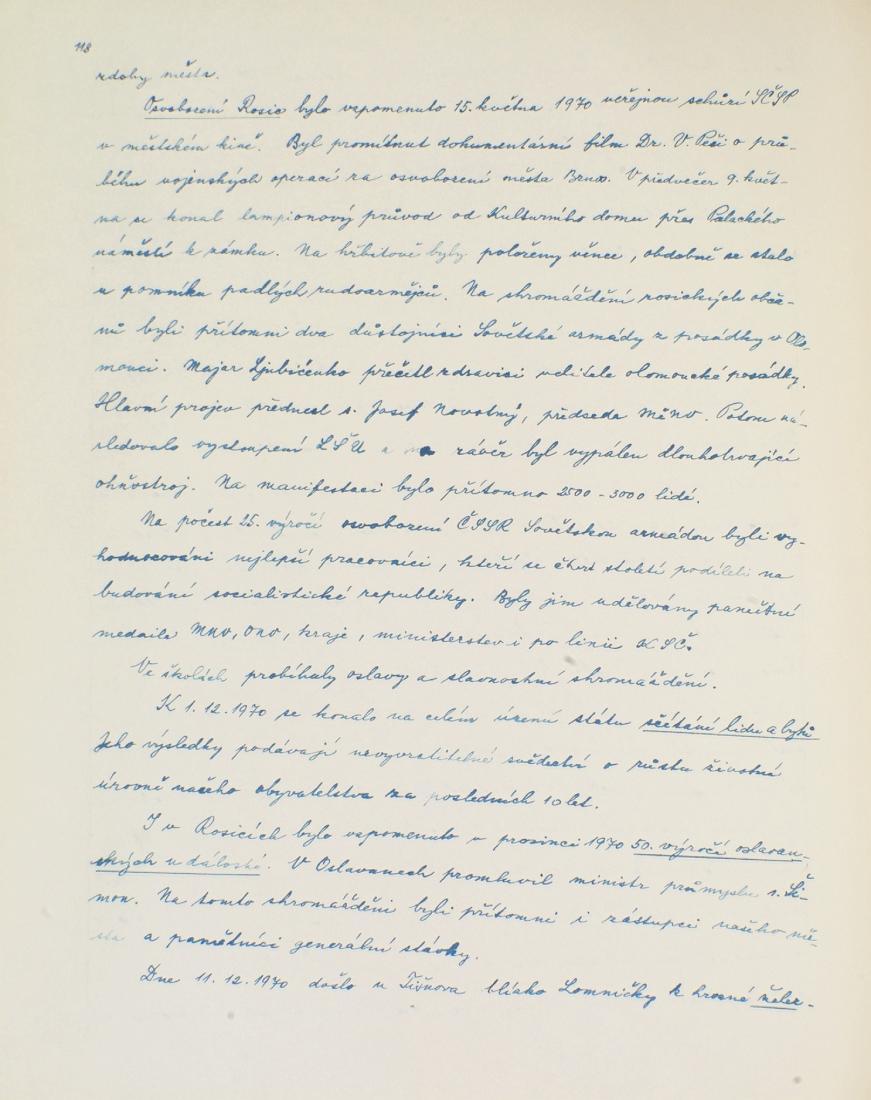 118
zdoby města.
Osvobození Rosic bylo vzpomenuto 15. května 1970 veřejnou schůzí SČSP
v městském kině. Byl promítnut dokumentární film Dr. V. Peši o prů-
běhu vojenských operací za osvobození města Brna. V předvečer 9. květ-
na se konal lampionový průvod od Kulturního domu přes Palackého
náměstí k zámku. Na hřbitově byly položeny věnce, obdobně se stalo
u pomníku padlých rudoarmějců. Na shromáždění rosických obča-
nů byli přítomni dva důstojníci Sovětské armády z posádky v Olo-
mouci. Major Ljubičenko přečetl zdravici velitele olomoucké posádky.
Hlavní projev přednesl s. Josef Novotný, předseda MěNV. Potom ná-
sledovalo vystoupení LŠU a na závěr byl vypálen dlouhotrvající
ohňostroj. Na manifestaci bylo přítomno 2500 - 3000 lidí.
Na počest 25. výročí osvobození ČSSR Sovětskou armádou byli vy-
hodnocováni nejlepší pracovníci, kteří se čtvrt století podíleli na
budování socialistické republiky. Byly jim udělovány pamětní
medaile MNV, ONV, kraje, ministerstev i po linii KSČ.
Ve školách probíhaly oslavy a slavnostní shromáždění.
K 1. 12. 1970 se konalo na celém území státu sčítání lidu a bytů
Jeho výsledky podávají nevyvratitelné svědectví o růstu životní
úrovně našeho obyvatelstva za posledních 10 let.
I v Rosicích bylo vzpomenuto v prosinci 1970 50. výročí oslavan-
ských událostí. V Oslavanech promluvil ministr průmyslu s. Ši-
mon. Na tomto shromáždění byli přítomni i zástupci našeho mě-
sta a pamětníci generální stávky.
Dne 11. 12. 1970 došlo u Tišnova blízko Lomničky k hrozné želez-